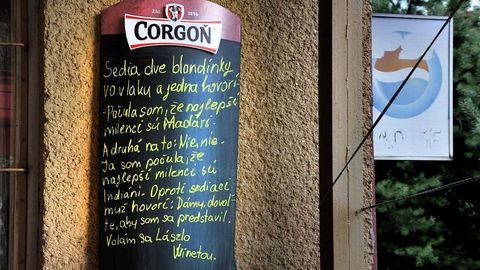 ZAL 1896
CORGOŇ
Sedia dve blondínky
vo vlaku a jedna hovorí:
- Počula som, že najlepší
milenci sú Maďari.
A druhá na to: Nie, nie.
Ja som počula, že
najlepší milenci sú
Indiáni. Oproti sediaci
muž hovorí: Dámy, dovoľ-
te, aby som sa predstavil.
Volám sa László
Winetou.